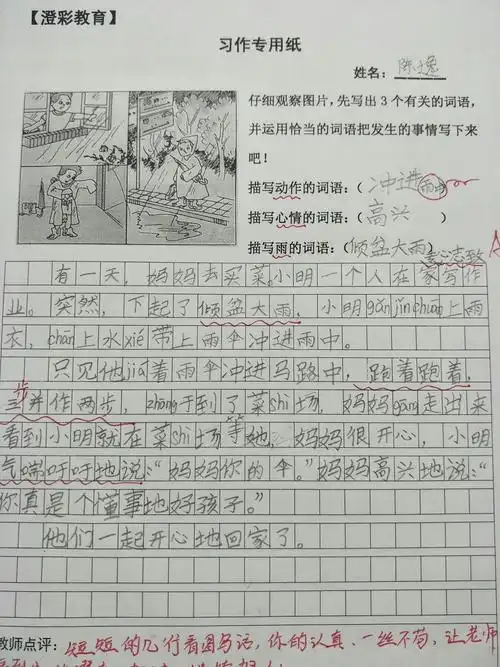 【澄彩教育】
习作专用纸
姓名：陈逸
仔细观察图片，先写出3个有关的词语，
并运用恰当的词语把发生的事情写下来
吧！
描写动作的词语：（冲进雨中）
描写心情的词语：（高兴）
描写雨的词语：（倾盆大雨）
有一天，妈妈去买菜。小明一个人在家写作
业。突然，下起了倾盆大雨，小明gǎnjǐnchuān上雨
衣，chuān上水xié带上雨伞冲进雨中。
只见他jiā着雨伞冲进马路中，跑着跑着，
三步并作两步，zhōng于到了菜shì场，妈妈gāng走出来
看到小明就在菜shì场等她，妈妈很开心，小明
气喘吁吁地说：“妈妈你的伞。”妈妈高兴地说：“
你真是个懂事地好孩子。”
他们一起开心地回家了。
教师点评：短短的几行看图写话，你的认真、一丝不苟，让老师